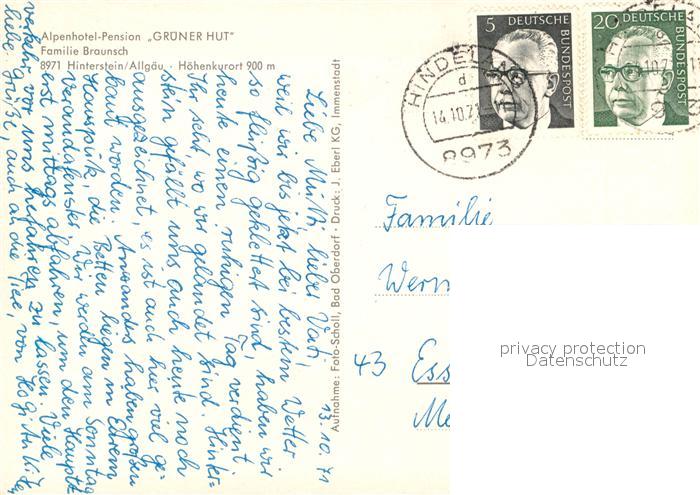 Alpenhotel-Pension „GRÜNER HUT"
Familie Braunsch
8971 Hinterstein/Allgäu · Höhenkurort 900 m
13.10.71
Liebe Mutti, lieber Vati,
weil wir bis jetzt bei bestem Wetter
so fleißig geklettert sind, haben wir
heute einen ruhigen Tag verdient.
Ihr seht, wo wir gelandet sind. Hinter-
stein gefällt uns auch heute noch
ausgezeichnet, es ist auch hier viel ge-
baut worden. Anwanders haben großen
Hausputz, die Betten liegen im
Verandafenster. Wir werden am Sonntag
erst mittags abfahren, um den Haupt-
verkehr vor uns herfahren zu lassen. Viele
liebe Grüße, auch an die
Aufnahme: Foto-Scholl, Bad Oberdorf · Druck: J. Eberl KG, Immenstadt
5 DEUTSCHE BUNDESPOST
20 DEUTSCHE BUNDESPOST
HINDELANG
d
14.10.71
8973
Familie
Wern
43 Ess
Me
privacy protection
Datenschutz